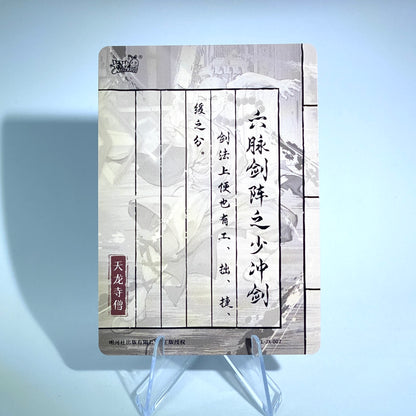 六脉剑阵之少冲剑
剑法上便也有工、拙、捷、
缓之分。
天龙寺僧